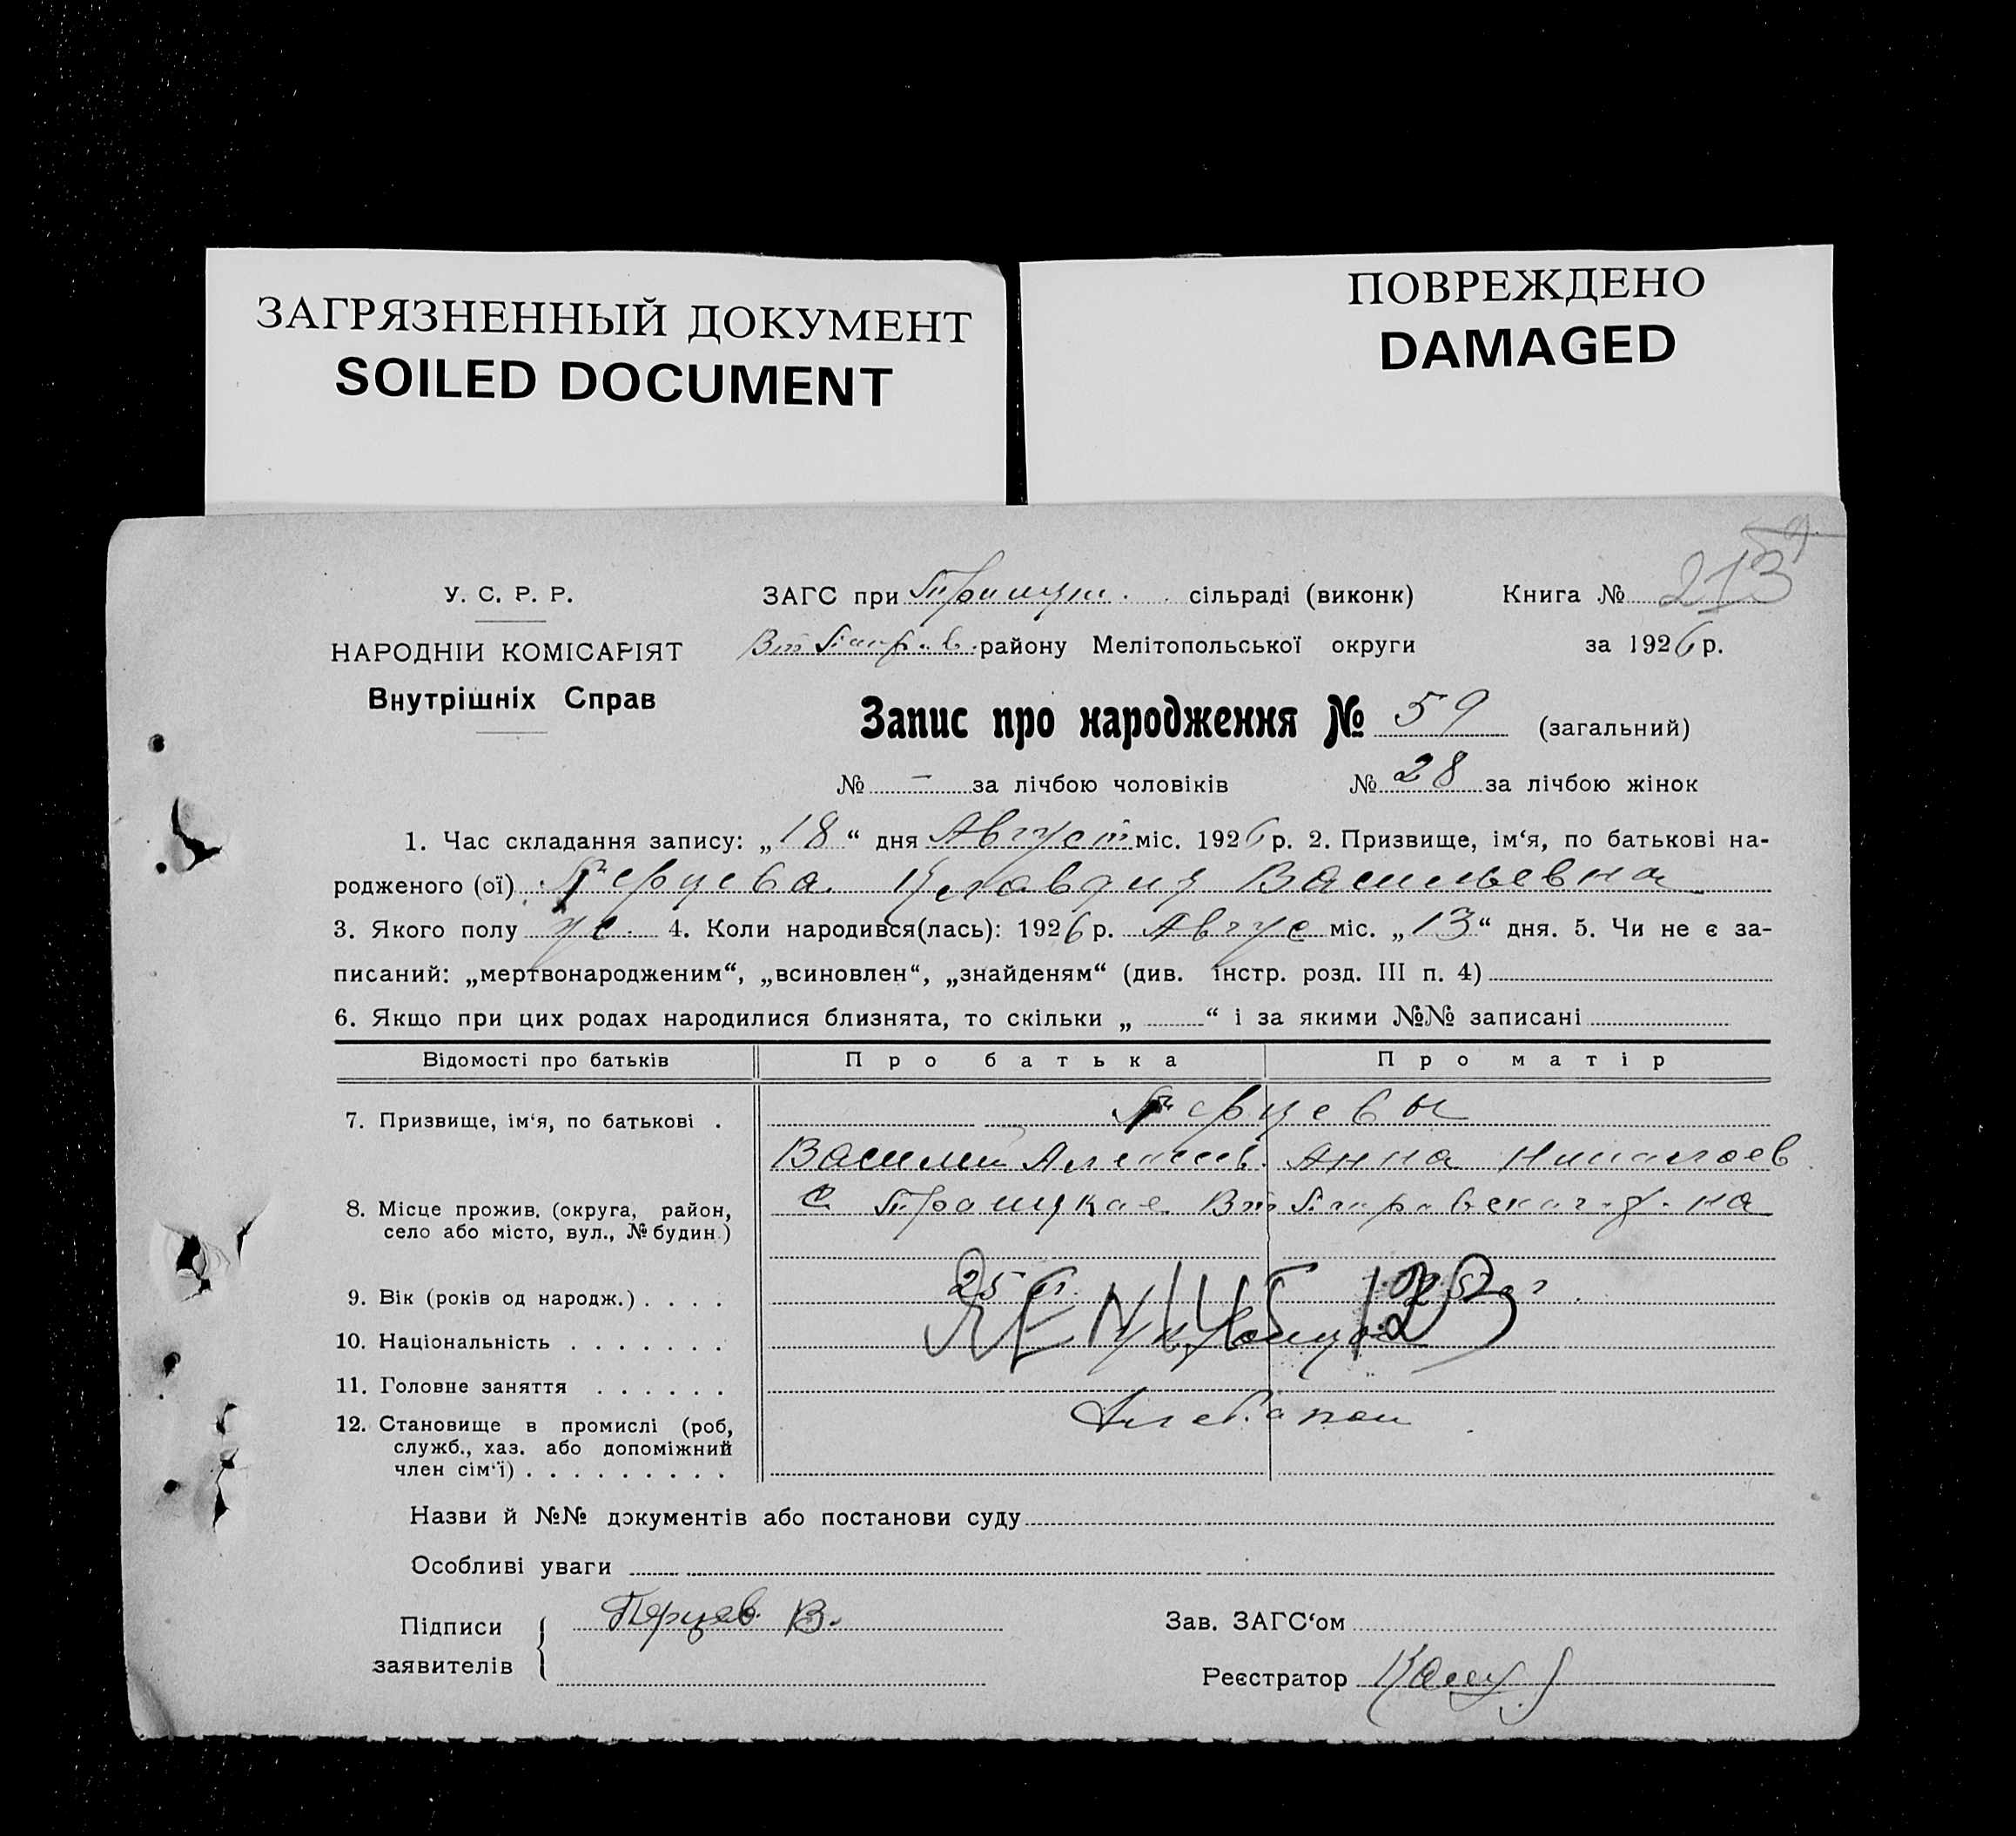 ЗАГРЯЗНЕННЫЙ ДОКУМЕНТ
SOILED DOCUMENT
ПОВРЕЖДЕНО
DAMAGED
У. С. Р. Р.
НАРОДНІЙ КОМІСАРІЯТ
Внутрішніх Справ
ЗАГС при сільраді (виконк)
району Мелітопольської округи
Книга № 213
за 1926 р.
Запис про народження № 59 (загальний)
№ – за лічбою чоловіків № 28 за лічбою жінок
1. Час складання запису: „18“ дня Август міс. 1926 р. 2. Призвище, ім‘я, по батькові на-
родженого (ої) Перцева Клавдия Васильевна
3. Якого полу ж. 4. Коли народився(лась): 1926 р. Авгус міс. „13“ дня. 5. Чи не є за-
писаний: „мертвонародженим“, „всиновлен“, „знайденям“ (див. інстр. розд. III п. 4)
6. Якщо при цих родах народилися близнята, то скільки „ “ і за якими №№ записані
Відомості про батьків Про батька Про матір
Перцевы
7. Призвище, ім‘я, по батькові .
Василий Алексеев. Анна Николаев
8. Місце прожив. (округа, район,
село або місто, вул., № будин.)
с. Троицкое
9. Вік (років од народж.) . . . . 25 л.
10. Національність . . . . . . .
11. Головне заняття . . . . . .
12. Становище в промислі (роб,
служб., хаз. або допоміжний
член сім‘ї) . . . . . . . . .
Хлебопаш
Назви й №№ документів або постанови суду
Особливі уваги
Підписи
заявителів
Перцев В.
Зав. ЗАГС‘ом
Реєстратор